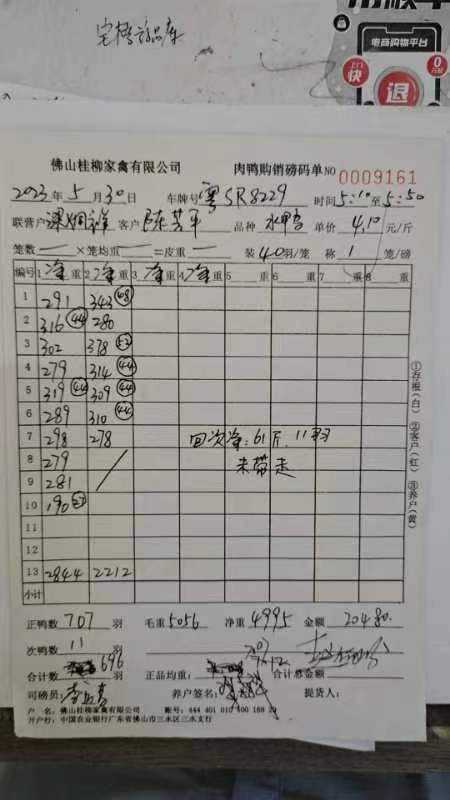 电商购物平台
上门
快
退
0
佛山桂柳家禽有限公司 肉鸭购销磅码单 NO 0009161
2023年5月30日 车牌号 粤SR8229 时间 5:10至5:50
联营户 客户 品种 单价 4.10 元/斤
笼数 ×笼均重 =皮重 装40羽/笼 称 1 笼/磅
编号 1净重 2净重 3净重 4净重 5 重 6 重 7 重 8 重
1 291 343 (48)
2 316 (44) 280
3 302 378 (52)
4 279 314 (44)
5 319 (44) 309 (44)
6 289 310 (44)
7 298 278 回次净:61斤, 11羽
8 279 未带走
9 281
10 190
11
12
13 2844 2212
小计
①存根(白) ②客户(红) ③养户(黄)
正鸭数 707 羽 毛重 5056 净重 4995 金额 20480.
次鸭数 11 羽
合计数 696 羽 正品均重: 7.12 合计总金额
司磅员: 养户签名: 提货人:
户 名: 佛山桂柳家禽有限公司 账号: 444 401 010 400 188 29
开户行: 中国农业银行广东省佛山市三水区三水支行